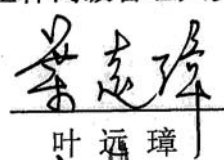 叶远璋
叶远璋